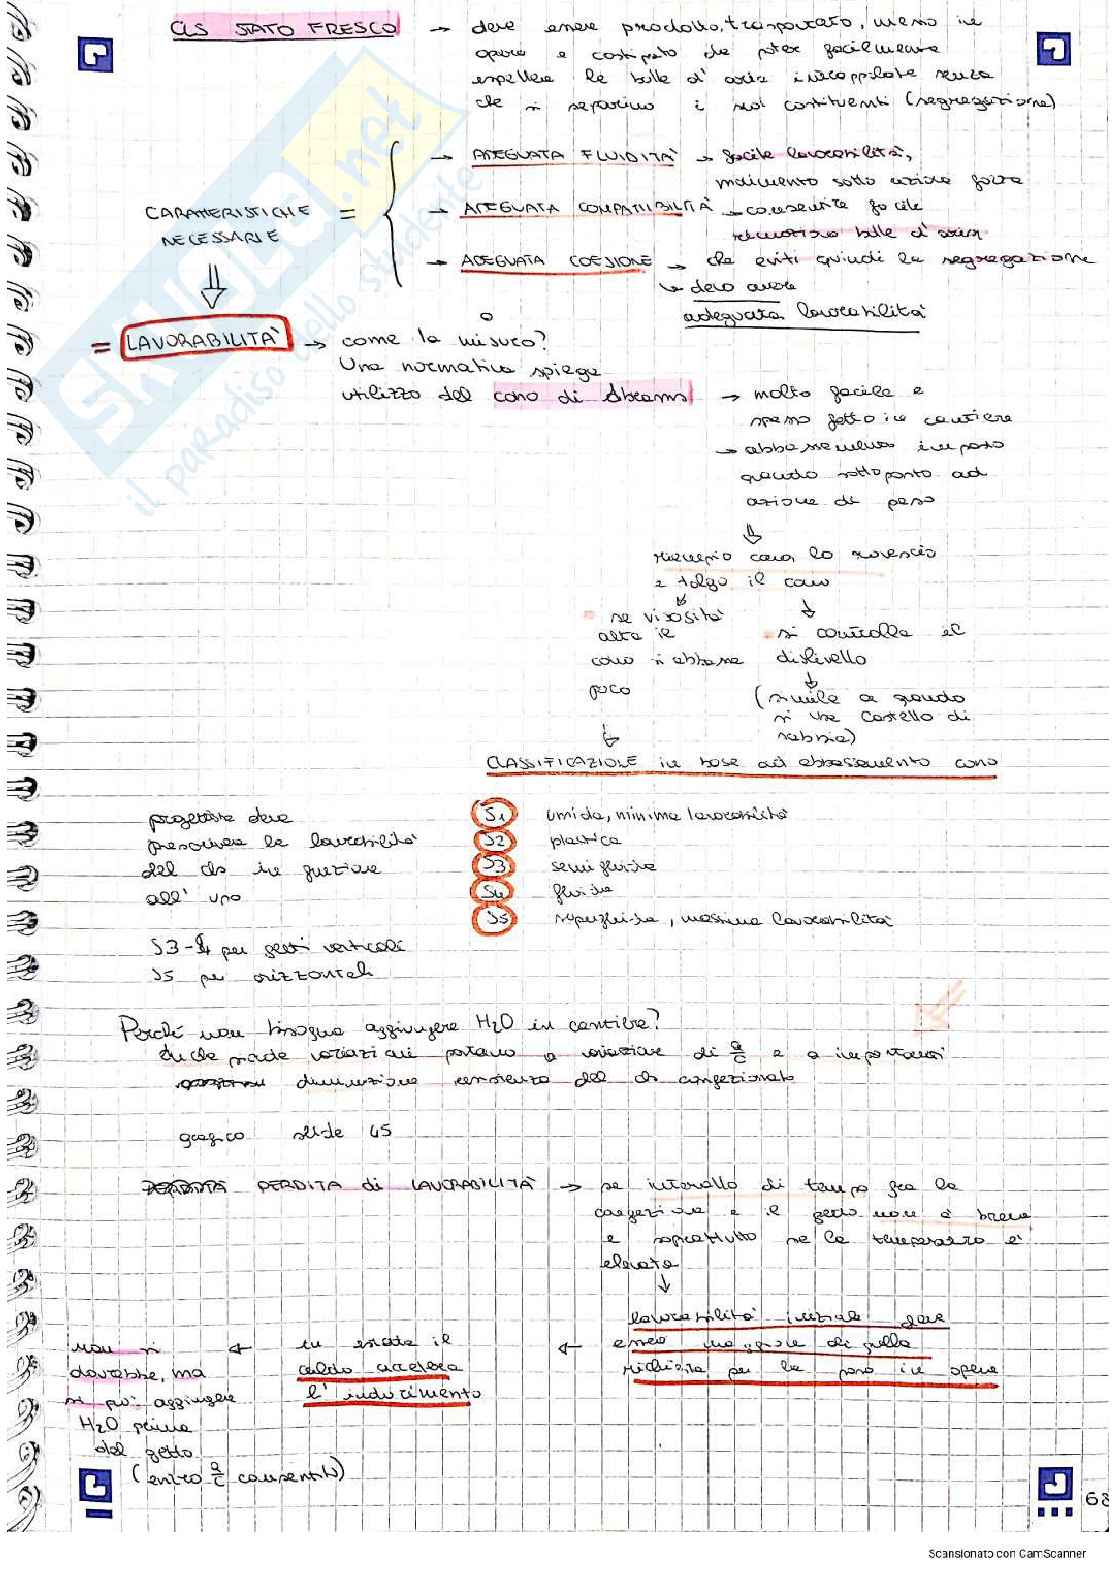 CLS STATO FRESCO → deve essere prodotto, trasportato, messo in
opera e costipato che poter facilmente
espellere le bolle d'aria intrappolate senza
che si separino i suoi costituenti (segregazione)
CARATTERISTICHE NECESSARIE =
→ ADEGUATA FLUIDITÀ → facile lavorabilità,
movimento sotto azione forze
→ ADEGUATA COMPATTIBILITÀ → consentire facile
rimozione bolle d'aria
→ ADEGUATA COESIONE → che eviti quindi la segregazione
↳ devo avere
adeguata lavorabilità
= LAVORABILITÀ → come la misuro?
Una normativa spiega
utilizzo del cono di Abrams → molto facile e
spesso fatto in cantiere
→ abbassamento impasto
quando sottoposto ad
azione di peso
riempio cono, lo rovescio
e tolgo il cono
se viscosità
alta il
cono si abbassa
poco
si controlla il
dislivello
(simile a quando
si usa castello di
sabbia)
CLASSIFICAZIONE in base ad abbassamento cono
S1 umida, minima lavorabilità
S2 plastica
S3 semifluida
S4 fluida
S5 superfluida, massima lavorabilità
progettista deve
prescrivere la lavorabilità
del cls in funzione
all'uso
S3-S4 per getti verticali
S5 per orizzontali
Perché non bisogna aggiungere H2O in cantiere?
Anche piccole variazioni portano a variazione di a/c e a importanti
diminuzione resistenza del cls confezionato
grafico slide 45
PERDITA di LAVORABILITÀ → se intervallo di tempo fra la
confezione e il getto non è breve
e soprattutto se la temperatura è
elevata
↓
lavorabilità iniziale deve
essere maggiore di quella
richiesta per la posa in opera
← in estate il
caldo accelera
l'indurimento
← non si
dovrebbe, ma
si può aggiungere
H2O prima
del getto
(entro a/c consentito)
68
SKUOLA.net
il paradiso dello studente
Scansionato con CamScanner